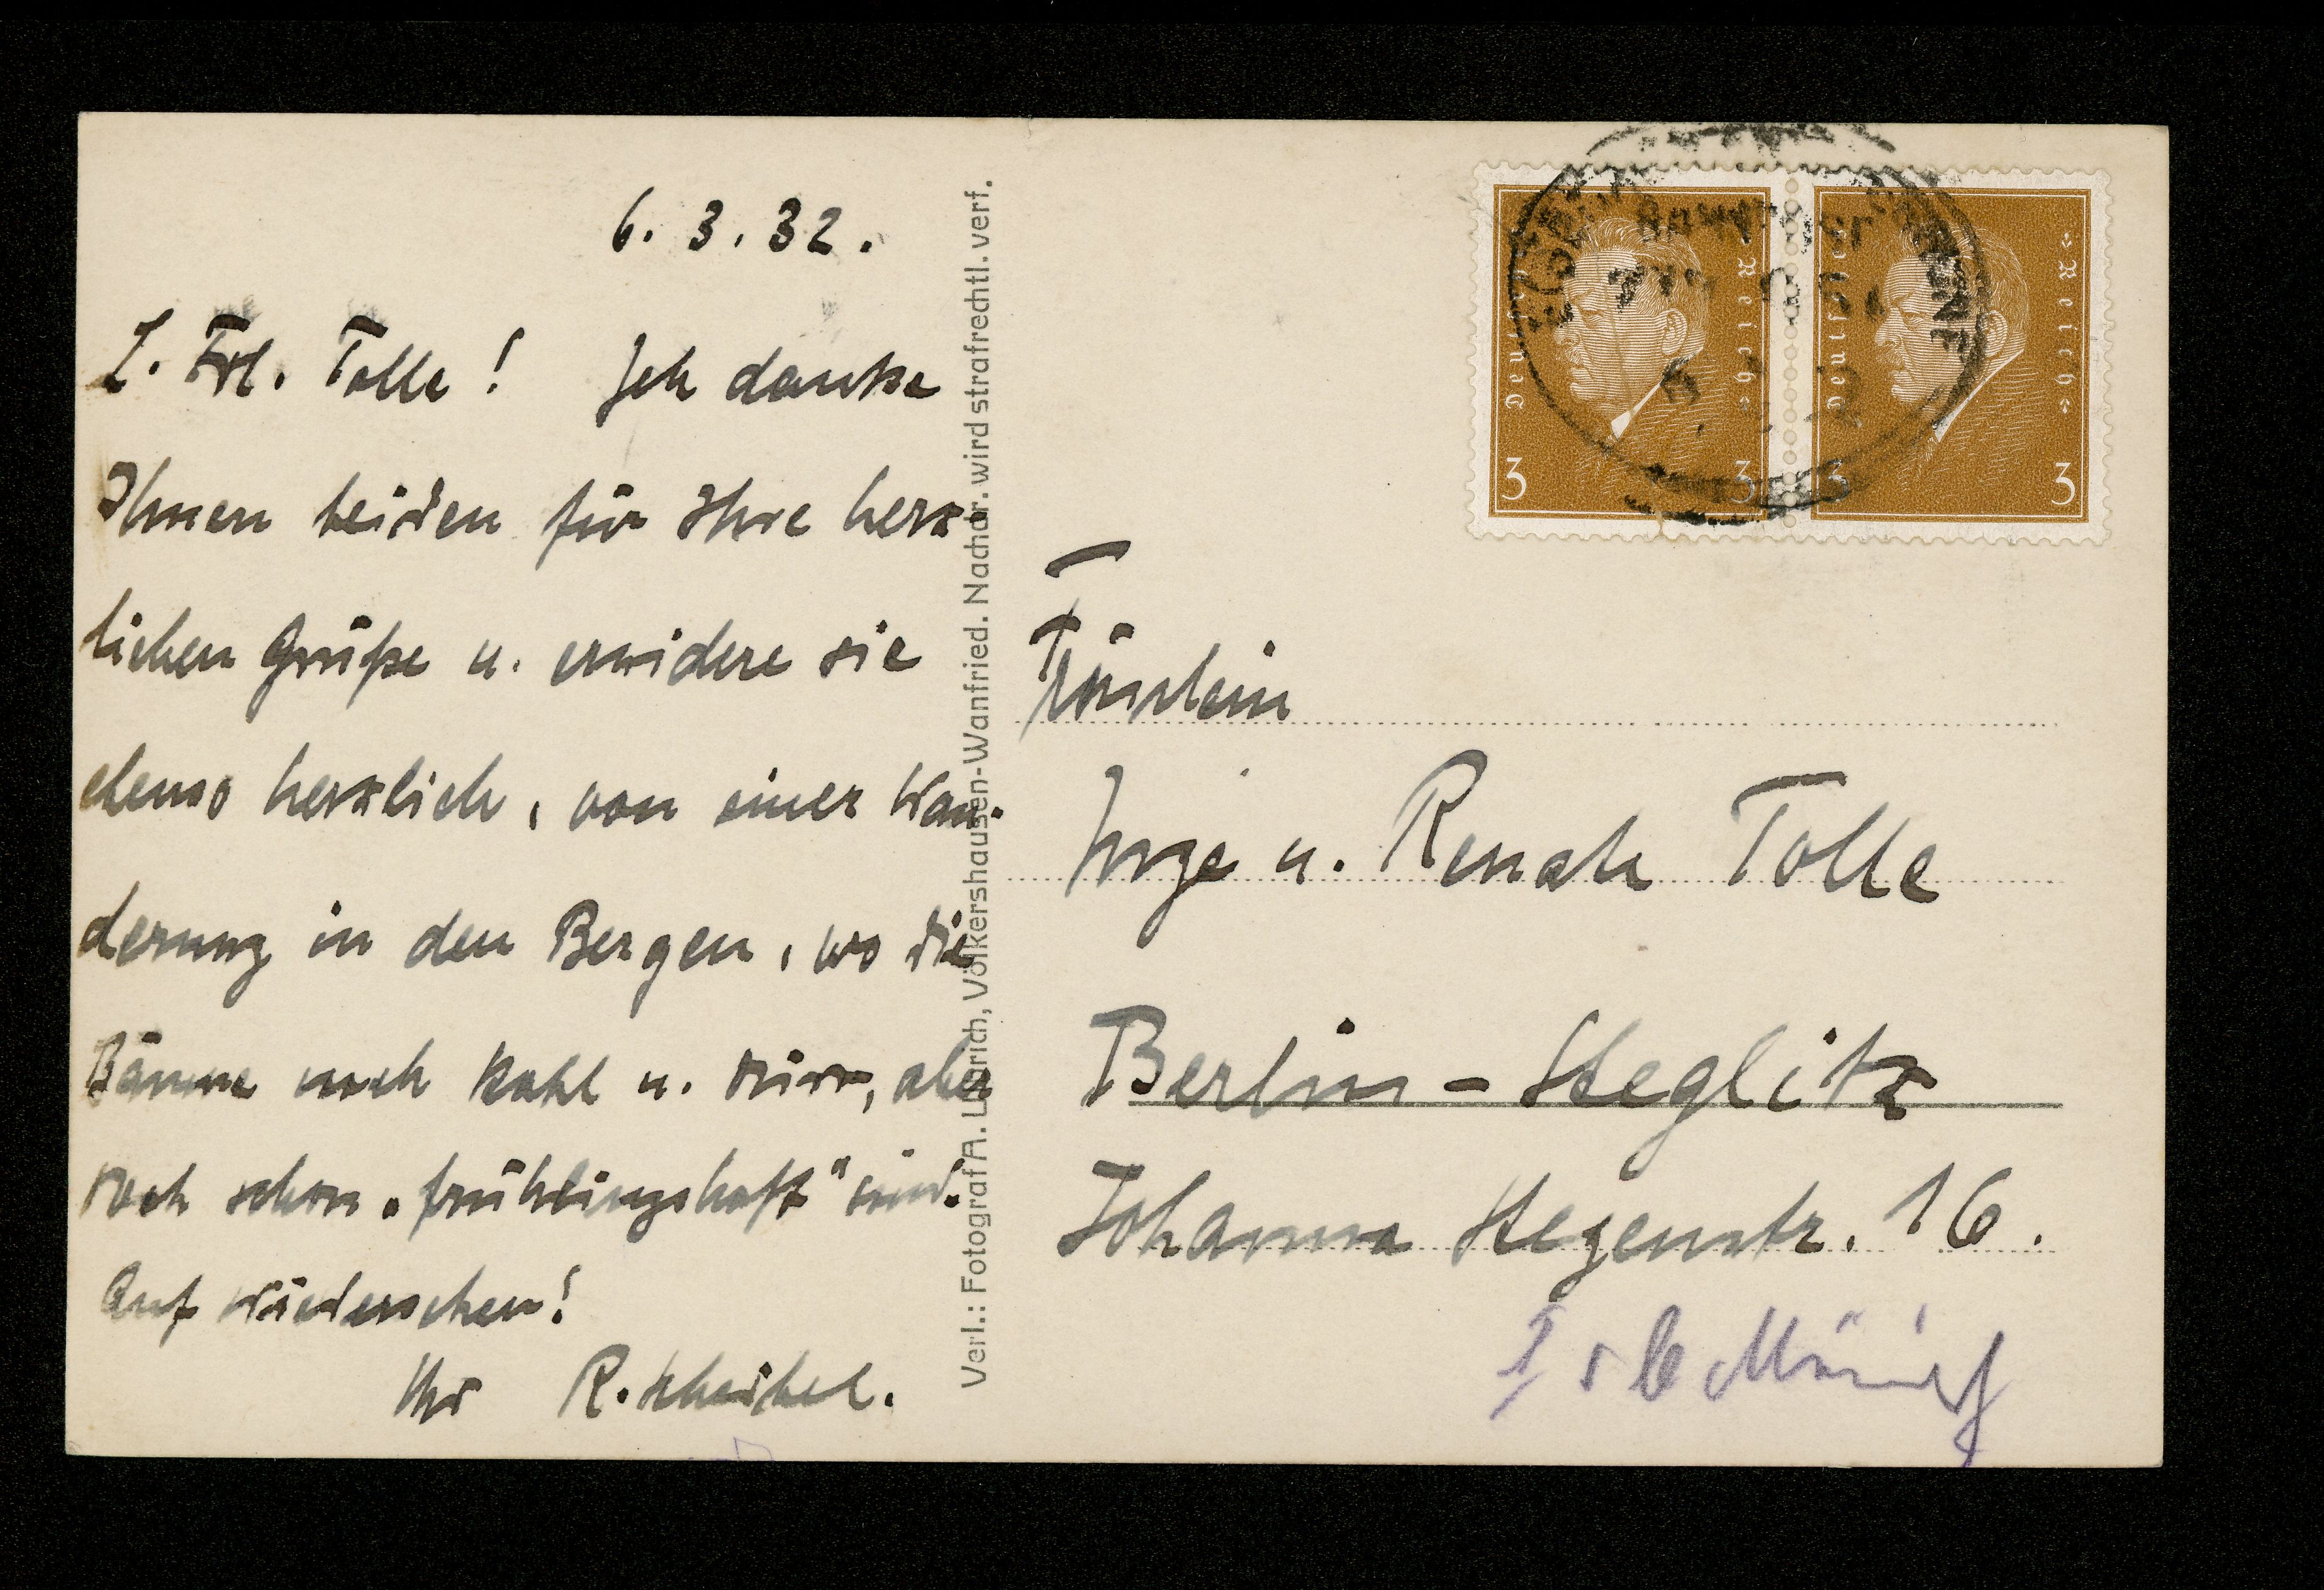 6. 3. 32.
L. Frl. Tolle! Ich danke
Ihnen beiden für Ihre herz-
lichen Grüße u. erwidere sie
ebenso herzlich, von einer Wan-
derung in den Bergen, wo die
Bäume noch kahl u. dürr, aber
doch schon „frühlingshaft" sind.
Auf Wiedersehen!
Ihr R. Scheibel.
Verl.: Fotograf A. Ullrich, Völkershausen-Wanfried. Nachdr. wird strafrechtl. verf.
Deutsches Reich
3 3
Deutsches Reich
3 3
Fräulein
Inge u. Renate Tolle
Berlin-Steglitz
Johanna Stegenstr. 16.